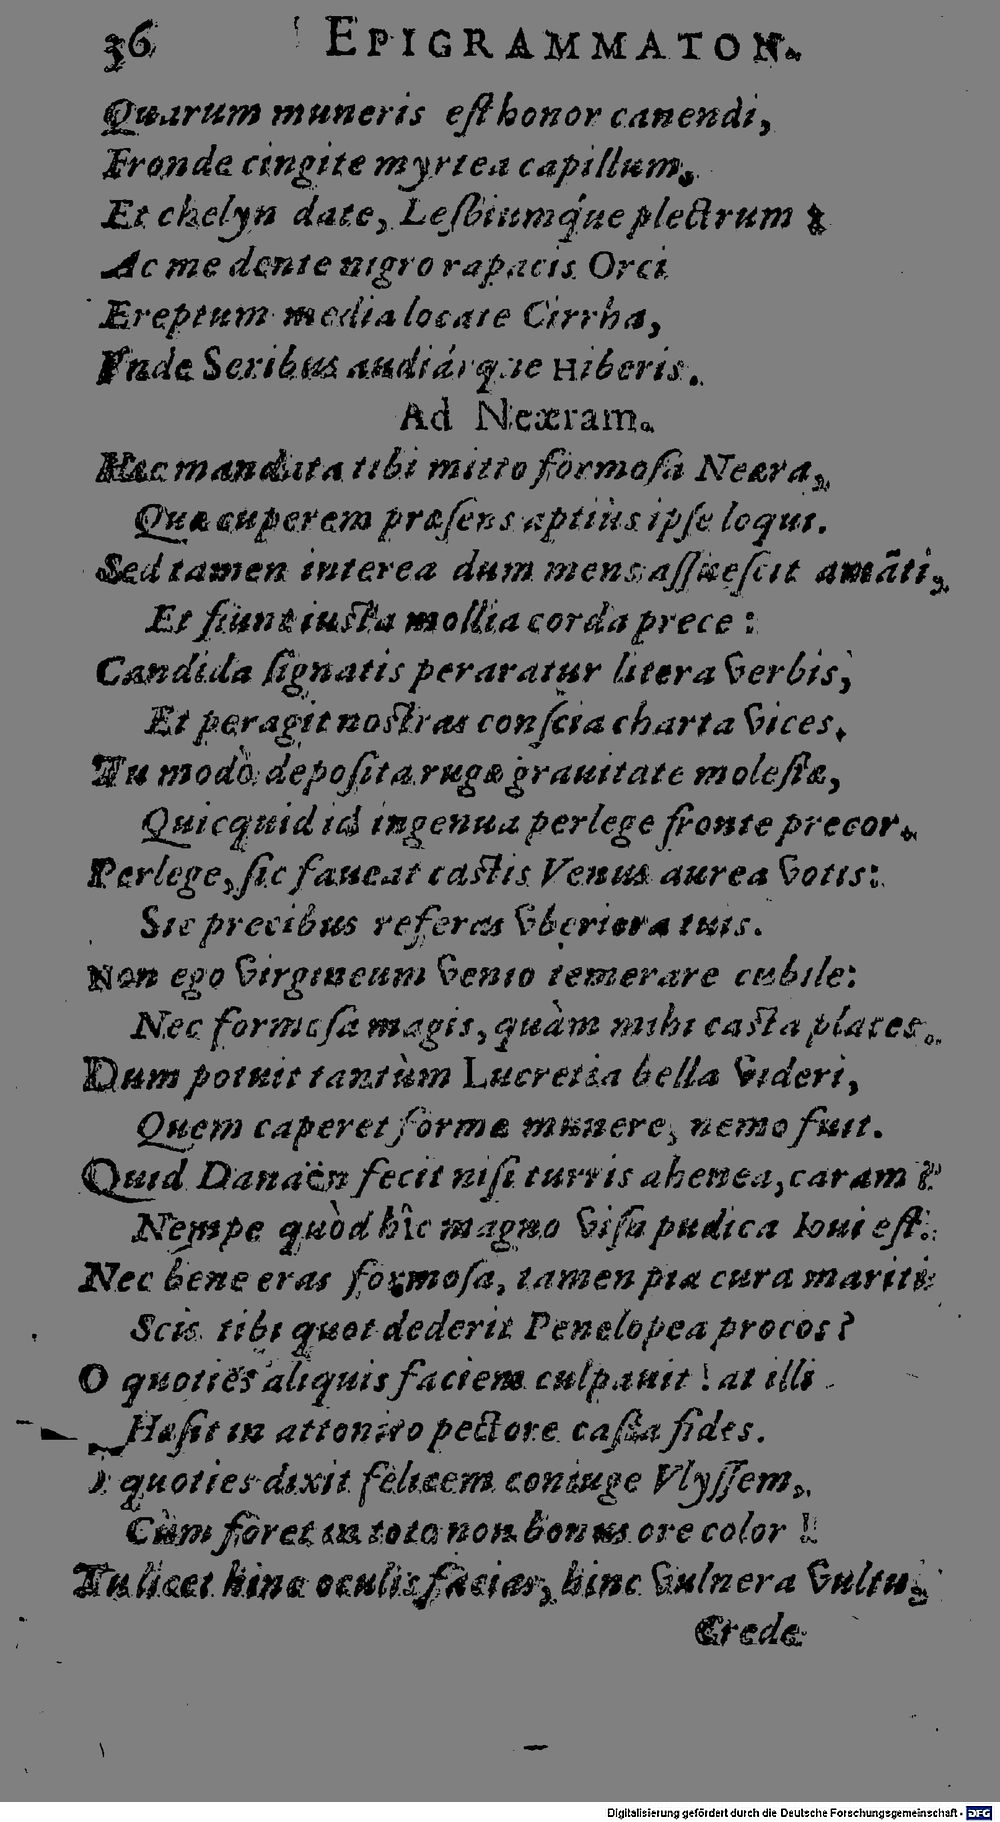 36 EPIGRAMMATON.
Quarum muneris est honor canendi,
Fronde cingite myrtea capillum,
Et chelyn date, Lesbiumq́ue plectrum:
Ac me dente nigro rapacis Orci
Ereptum media locate Cirrha,
Vnde Seribus audiárque Hiberis.
Ad Neæram.
Hæc mandata tibi mitto formosa Neæra,
Quæ cuperem præsens aptiùs ipse loqui.
Sed tamen interea dum mens assuescit amāti,
Et fiunt iusta mollia corda prece:
Candida signatis peraratur litera verbis,
Et peragit nostras conscia charta vices.
Tu modò deposita rugæ grauitate molestæ,
Quicquid id ingenua perlege fronte precor.
Perlege, sic faueat castis Venus aurea votis:
Sic precibus referas vberiora tuis.
Non ego virgineum venio temerare cubile:
Nec formosa magis, quàm mihi casta places.
Dum potuit tantùm Lucretia bella videri,
Quem caperet formæ munere, nemo fuit.
Quid Danaën fecit nisi turris ahenea, caram?
Nempe quòd hîc magno visa pudica Ioui est.
Nec bene eras formosa, tamen pia cura mariti
Scis tibi quot dederit Penelopea procos?
O quoties aliquis faciem culpauit! at illi
Hæsit in attonito pectore casta fides.
quoties dixit felicem coniuge Vlyssem,
Cùm foret in toto non bonus ore color!
Tu licet hinc oculis facias, hinc vulnera vultu,
Crede
Digitalisierung gefördert durch die Deutsche Forschungsgemeinschaft - DFG